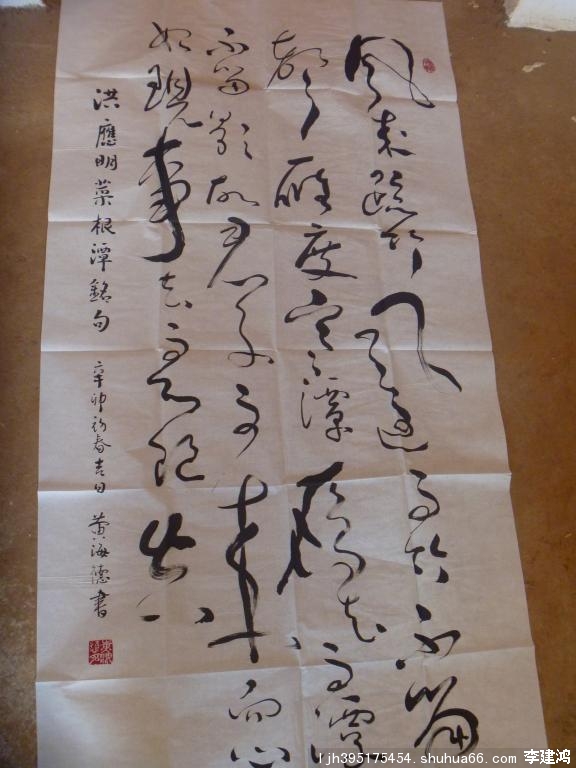 風來疏竹風過而竹不留
聲雁度寒潭雁去而潭
不留影故君子事來而心
始現事去而心隨空
洪應明菜根潭銘句 辛卯初春吉日 黄海德書
ljh395175454. shuhua66. com 李建鸿